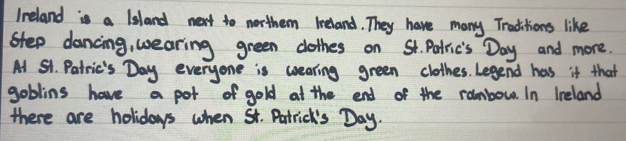 Ireland is a Island next to northern Ireland. They have many Traditions like
Step dancing, wearing green clothes on St. Patric's Day and more.
At St. Patric's Day everyone is wearing green clothes. Legend has it that
goblins have a pot of gold at the end of the rainbow. In Ireland
there are holidays when St. Patrick's Day.